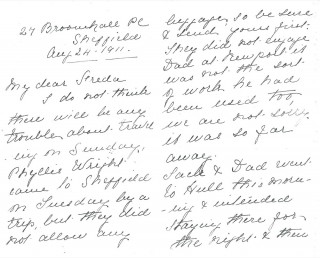 27 Broomhall Pl
Sheffield
Aug 24. 1911.
My dear Freda
I do not think
there will be any
trouble about travel
ing on Sunday.
Phyllis Wright
came to Sheffield
on Tuesday by a
trip, but they did
not allow any
luggage, so be sure
& send yours first.
They did not engage
Dad at Newport it
was not the sort
of work he had
been used too,
we are not sorry
it was so far
away.
Jack & Dad went
to Hull this morn
ing & intended
staying there for
the night & then